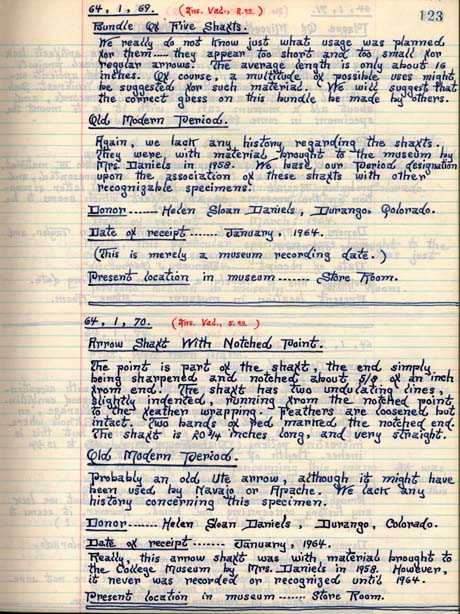 64, 1, 69. (Ins. Val., 2.00)
123
Bundle Of Five Shafts.
We really do not know just what usage was planned
for them---- they appear too short and too small for
regular arrows. The average length is only about 16
inches. Of course, a multitude of possible uses might
be suggested for such material. We will suggest that
the correct guess on this bundle be made by others.
Old Modern Period.
Again, we lack any history regarding the shafts.
They were with material brought to the museum by
Mrs. Daniels in 1958. We base our Period designation
upon the association of these shafts with other
recognizable specimens.
Donor------- Helen Sloan Daniels, Durango, Colorado.
Date of receipt------ January, 1964.
(This is merely a museum recording date.)
Present location in museum------- Store Room.
64, 1, 70. (Ins. Val., 5.00)
Arrow Shaft With Notched Point.
The point is part of the shaft, the end simply
being sharpened and notched about 5/8 of an inch
from end. The shaft has two undulating lines,
slightly indented, running from the notched point
to the feather wrapping. Feathers are loosened but
intact. Two bands of Red marked the notched end.
The shaft is 20 3/4 inches long, and very straight.
Old Modern Period.
Probably an old Ute arrow, although it might have
been used by Navajo or Apache. We lack any
history concerning this specimen.
Donor------- Helen Sloan Daniels, Durango, Colorado.
Date of receipt------- January, 1964.
Really, this arrow shaft was with material brought to
the College Museum by Mrs. Daniels in 1958. However,
it never was recorded or recognized until 1964.
Present location in museum------- Store Room.